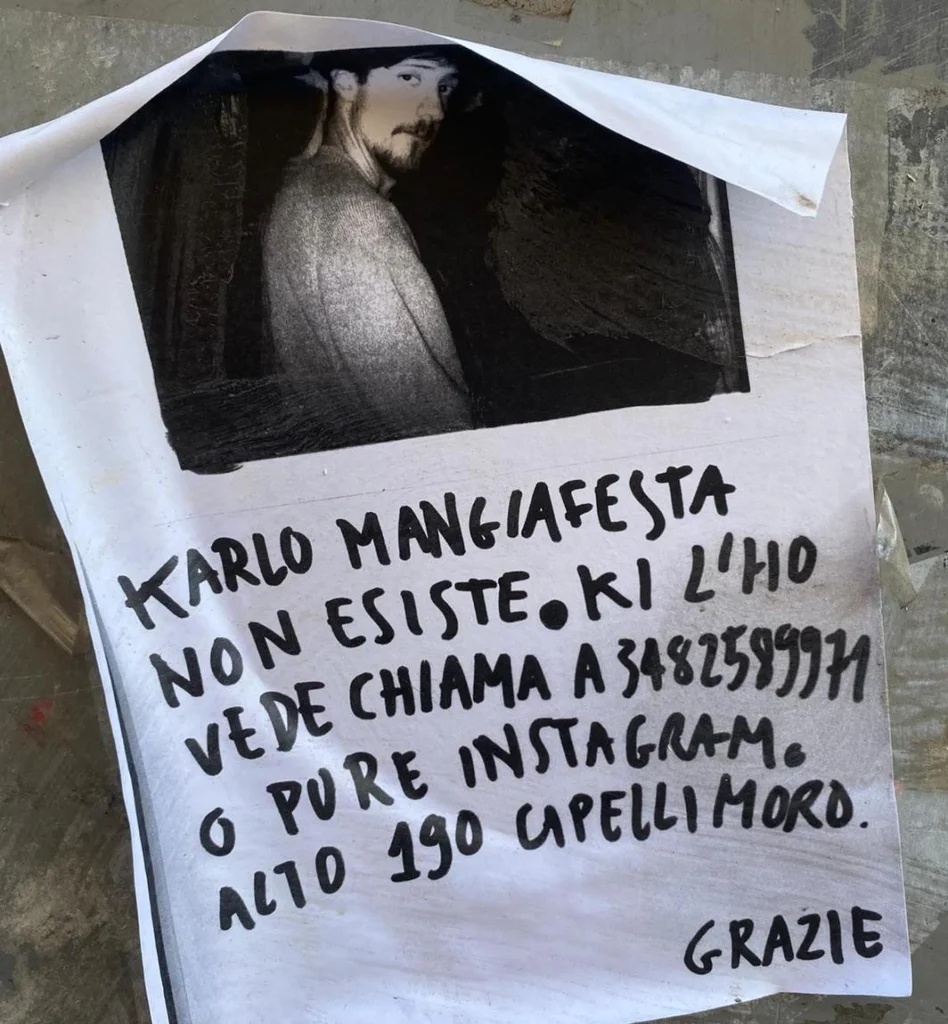 KARLO MANGIAFESTA
NON ESISTE. KI L'HO
VEDE CHIAMA A 3482589971
O PURE INSTAGRAM.
ALTO 190 CAPELLI MORO.
GRAZIE